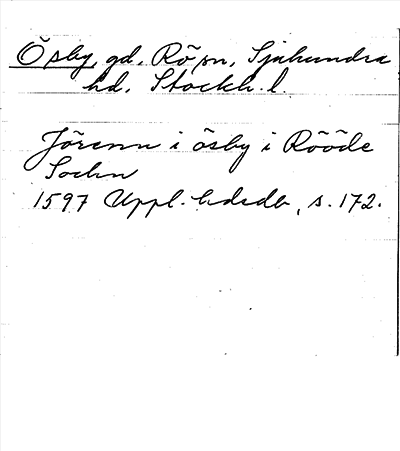 Ösby, gd, Rö sn, Sjuhundra
hd, Stockh. l.
Jörenn i ösby i Rööde
Sochn
1597 Uppl. hdrdb, s. 172.